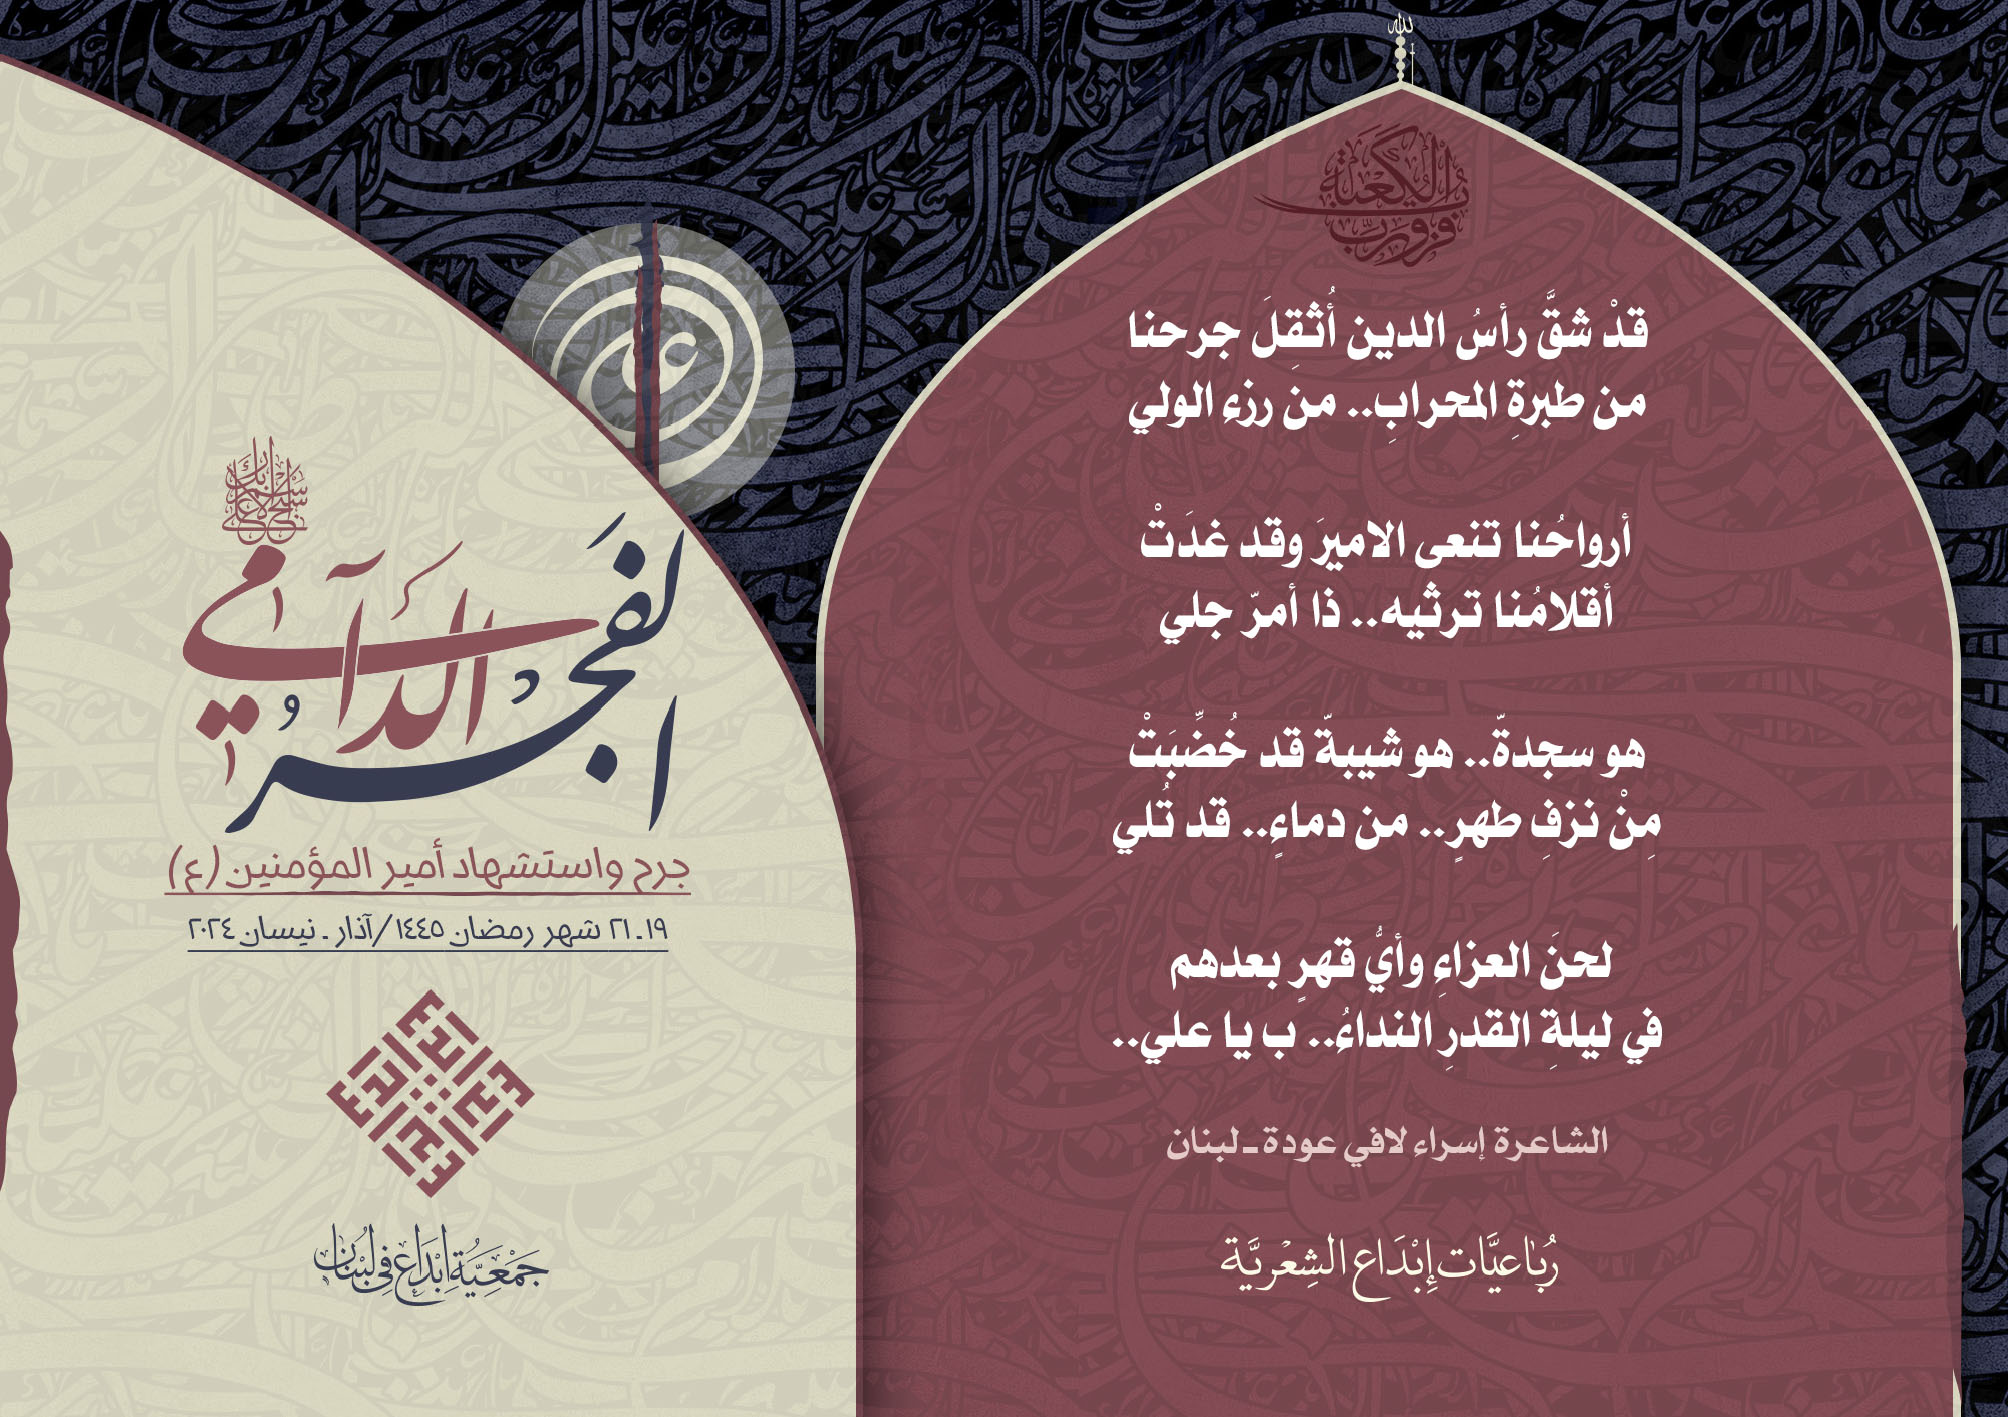 الله
فزت ورب الكعبة
قدْ شقَّ رأسُ الدين أُثقِلَ جرحنا
من طبرةِ المحرابِ.. من رزء الولي
أرواحُنا تنعى الاميرَ وقد غدَتْ
أقلامُنا ترثيه.. ذا أمرّ جلي
هو سجدةّ.. هو شيبةّ قد خُضِّبَتْ
مِنْ نزفِ طهرٍ.. من دماءٍ.. قد تُلي
لحنَ العزاءِ وأيُّ قهرٍ بعدهم
في ليلةِ القدرِ النداءُ.. ب يا علي..
الشاعرة إسراء لافي عودة ـ لبنان
رُبَاعيَّات إِبْدَاع الشِعْريَّة
علي
سبح اسم ربك الأعلى
الفَجرُ الدَّامي
جرح واستشهاد أمير المؤمنين (ع)
١٩ـ٢١ شهر رمضان ١٤٤٥/آذار ـ نيسان ٢٠٢٤
جَمْعِيَّة إِبْدَاع في لبْنان